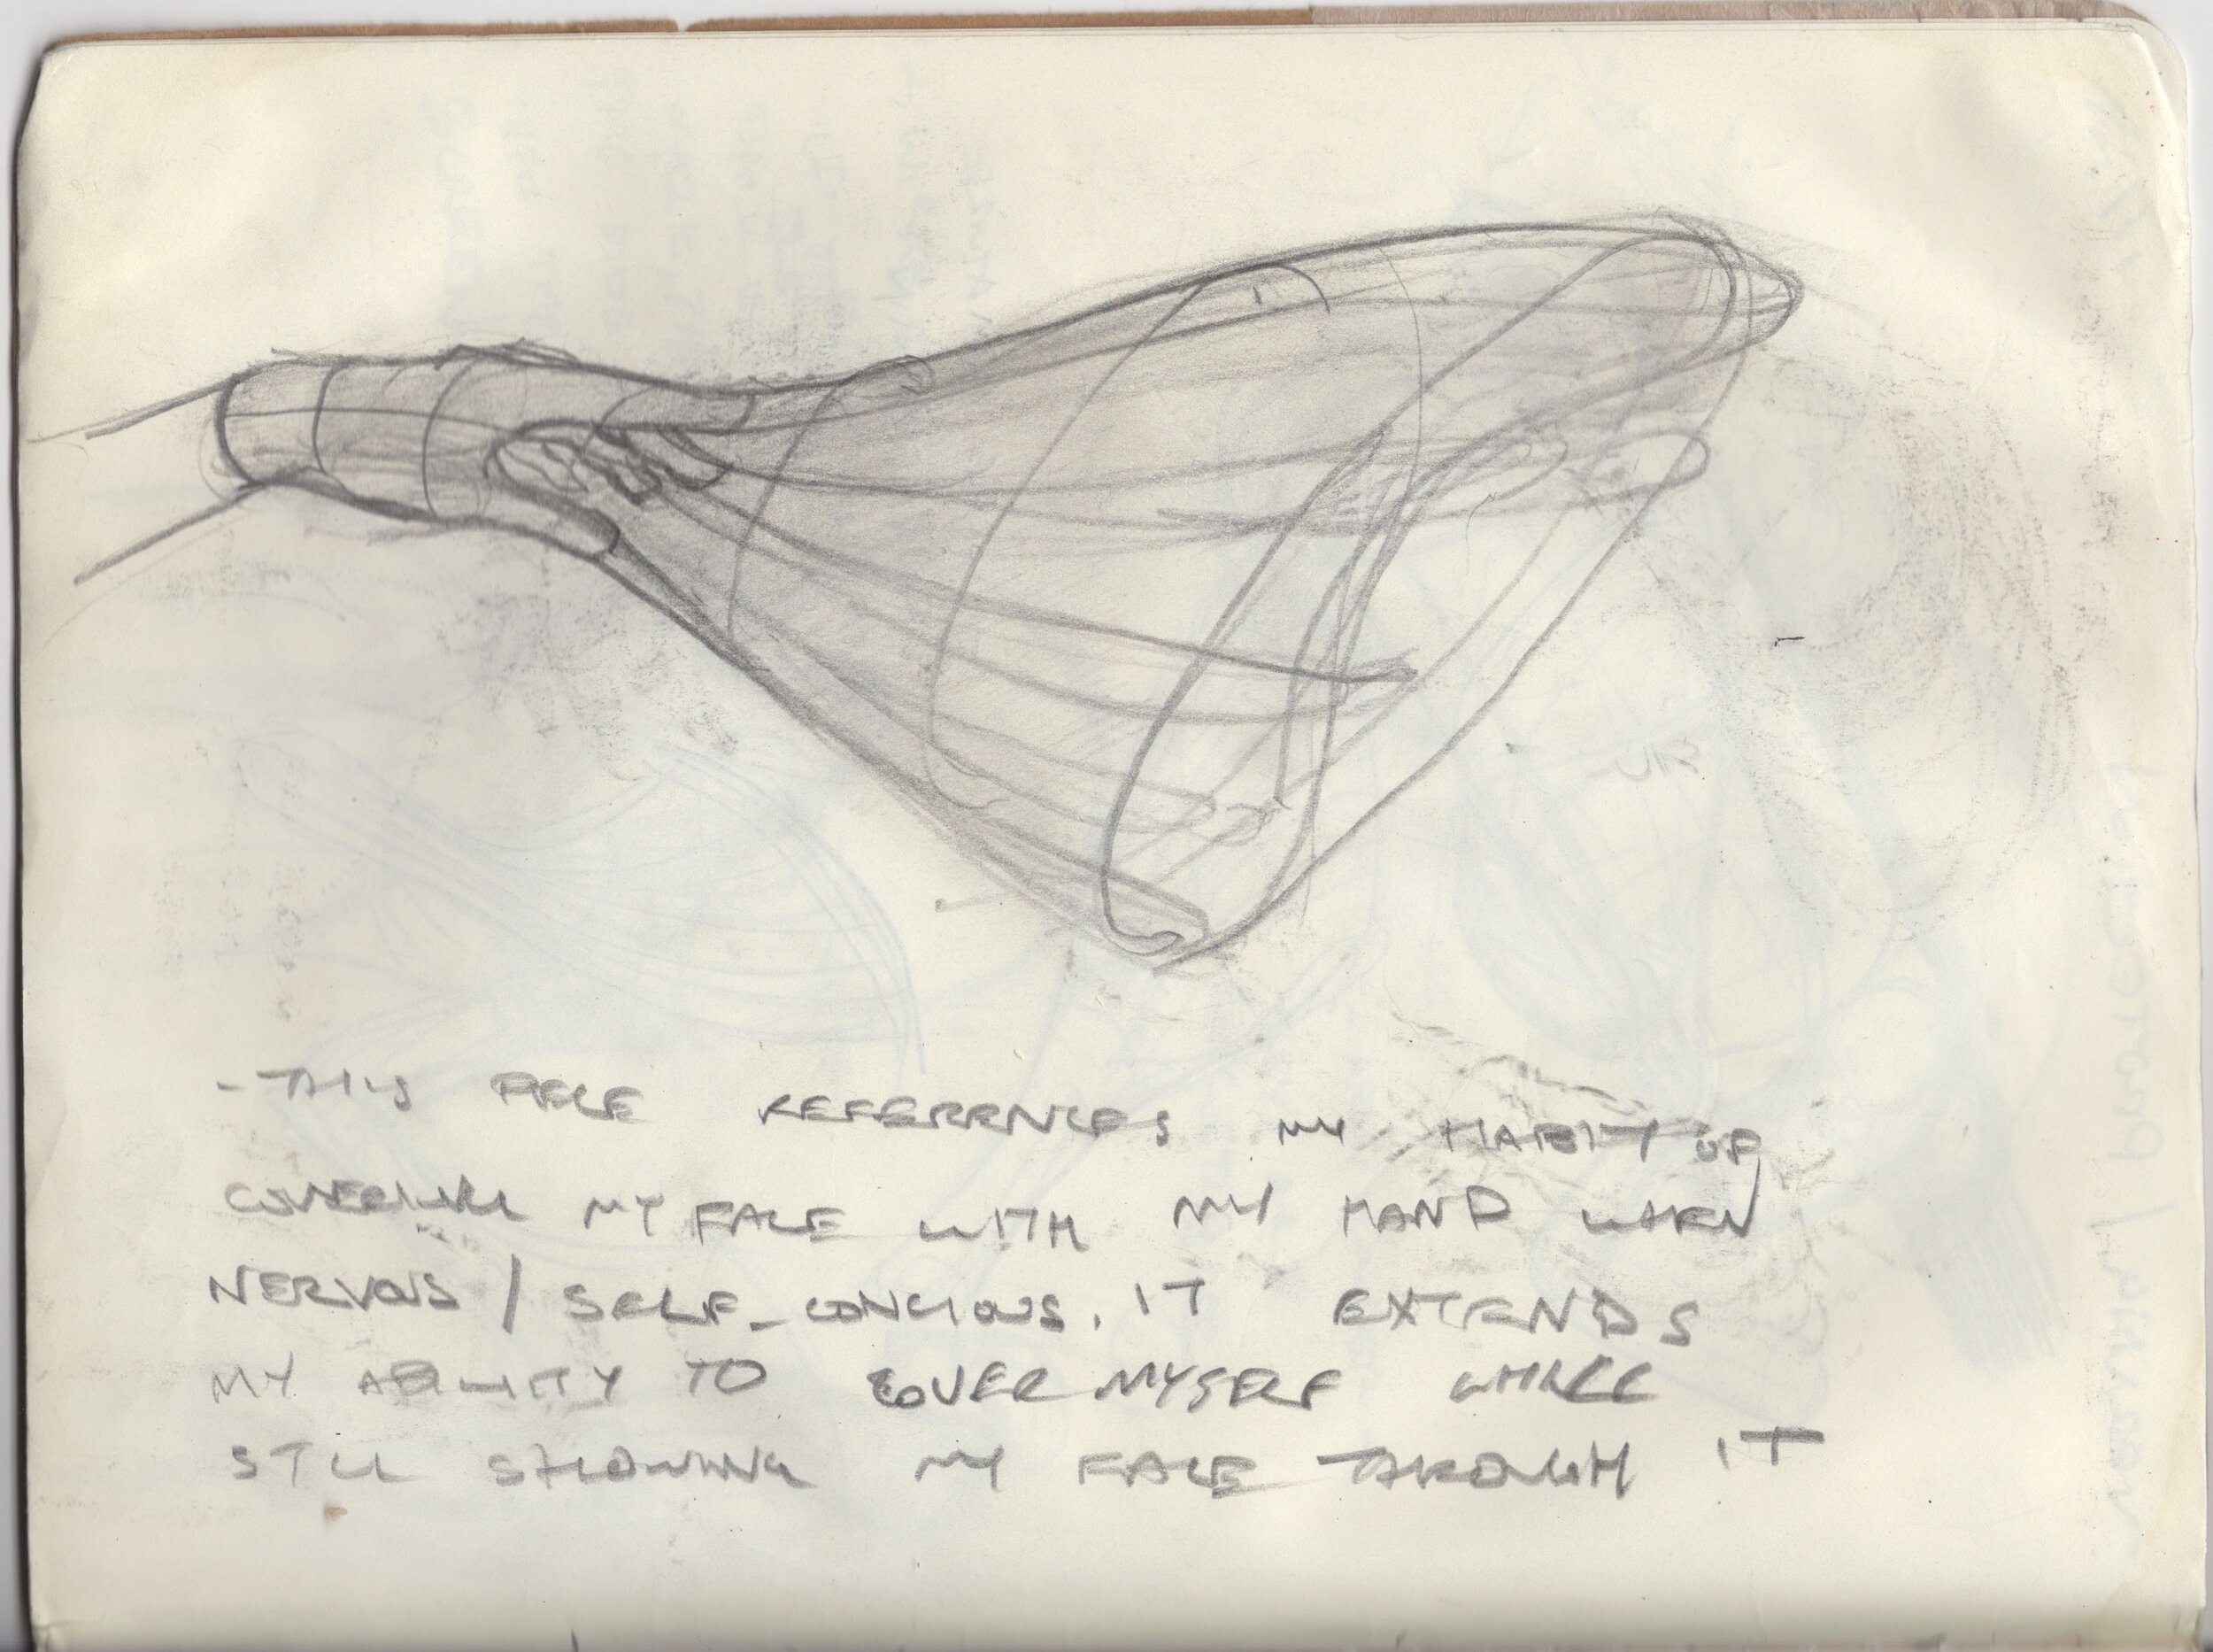 - THIS PIECE REFERENCES MY HABIT OF
COVERING MY FACE WITH MY HAND WHEN
NERVOUS / SELF-CONCIOUS. IT EXTENDS
MY ABILITY TO COVER MYSELF WHILE
STILL SHOWING MY FACE THROUGH IT